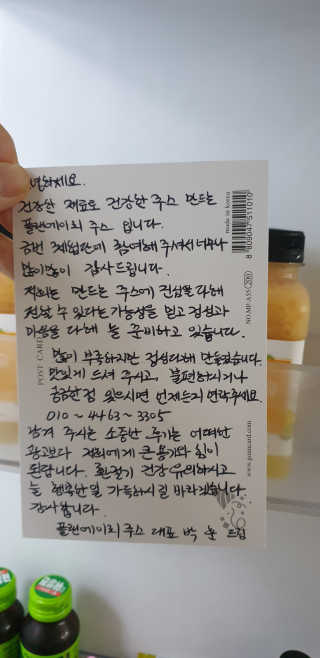 안녕하세요.
건강한 재료로 건강한 주스 만드는
플랜에이치 주스 입니다.
금번 체험단에 참여해 주셔서 너무나
많이많이 감사드립니다.
저희는 만드는 주스에 진심을 다해
전할 수 있다는 가능성을 믿고 정성과
마음을 다해 늘 준비하고 있습니다.
많이 부족하지만 정성다해 만들었습니다.
맛있게 드셔 주시고, 불편하시거나
궁금한점 있으시면 언제든지 연락주세요.
010 ~ 4463 ~ 3305
남겨 주시는 소중한 후기는 어떠한
광고보다 저희에게 큰 용기와 힘이
된답니다. 환절기 건강 유의하시고
늘 행복한일 가득하시길 바라겠습니다
감사합니다.
플랜에이치주스 대표 박 드림
POST CARD
made in korea
8 809047 511010
NO.MP-A55 200
www.pozzcard.com